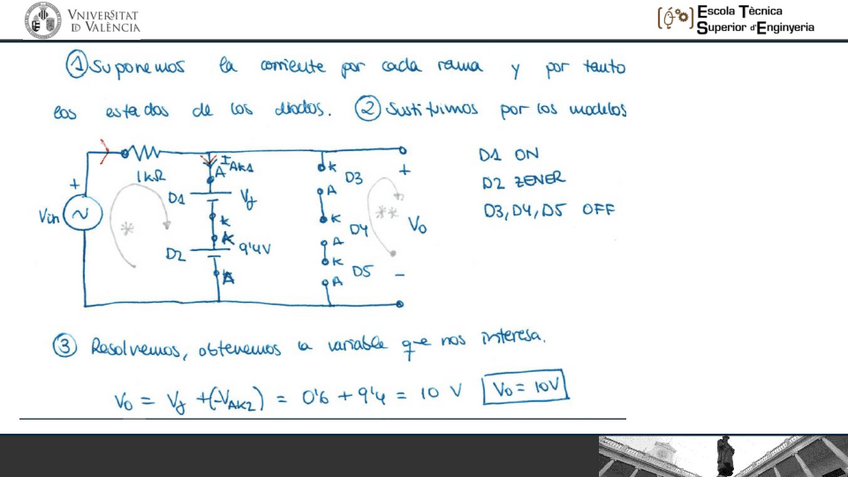 VNIVERSITAT
ID VALÈNCIA
Escola Tècnica
Superior d'Enginyeria
① Suponemos la corriente por cada rama y por tanto
los estados de los diodos. ② Sustituimos por los modelos
1kΩ
I_AK1
A
D1
Vγ
K
K
D2
9'4V
A
Vin
+
~
*
K
D3
A
K
D4
A
K
D5
A
+
**
Vo
-
D1 ON
D2 ZENER
D3, D4, D5 OFF
③ Resolvemos, obtenemos la variable que nos interesa.
Vo = Vγ + (-V_AK2) = 0'6 + 9'4 = 10 V Vo = 10V